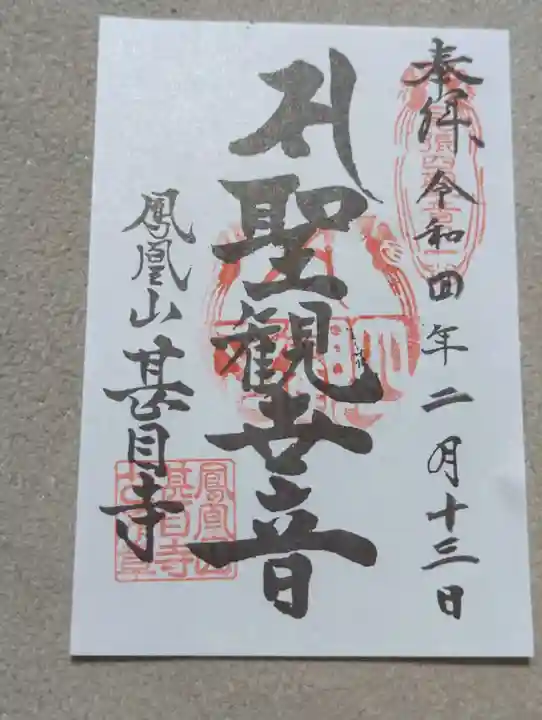 奉拝 令和四年二月十三日
聖観世音
鳳凰山 甚目寺
鳳凰山
甚目寺